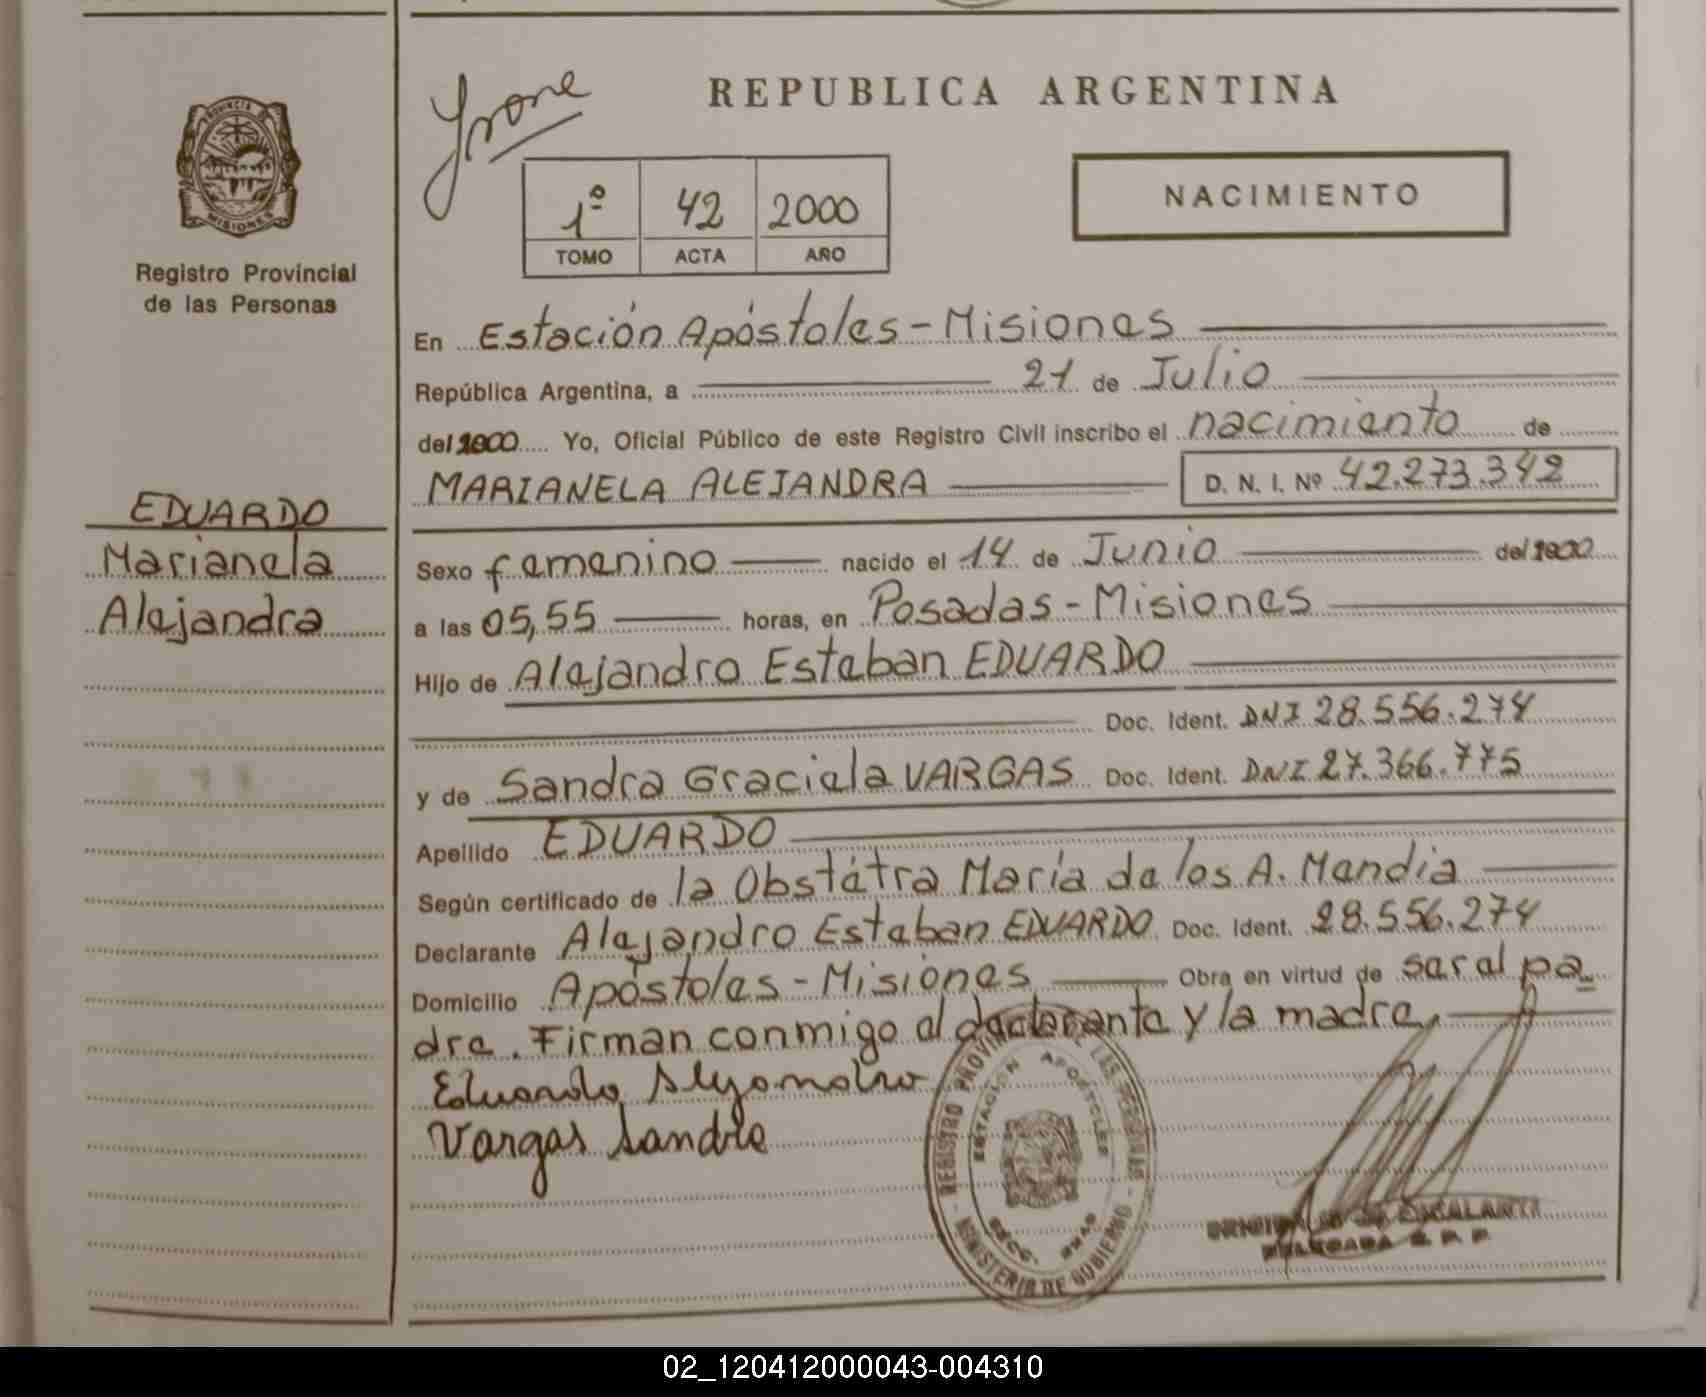 PROVINCIA
MISIONES
Registro Provincial
de las Personas
EDUARDO
Marianela
Alejandra
Yvone
REPUBLICA ARGENTINA
1º 42 2000
TOMO ACTA AÑO
NACIMIENTO
En Estación Apóstoles - Misiones
República Argentina, a 21 de Julio
del 2000 Yo, Oficial Público de este Registro Civil inscribo el nacimiento de
MARIANELA ALEJANDRA D. N. I. Nº 42.273.342
Sexo femenino nacido el 14 de Junio del 2000
a las 05,55 horas, en Posadas - Misiones
Hijo de Alejandro Esteban EDUARDO
Doc. Ident. DNI 28.556.274
y de Sandra Graciela VARGAS Doc. Ident. DNI 27.366.775
Apellido EDUARDO
Según certificado de la Obstétra María de los A. Mendia
Declarante Alejandro Esteban EDUARDO Doc. Ident. 28.556.274
Domicilio Apóstoles - Misiones Obra en virtud de ser el pa
dre. Firman conmigo el declarante y la madre,
Eduardo Alejandro
Vargas Sandra
REGISTRO PROVINCIAL DE LAS PERSONAS
ESTACION APOSTOLES
MINISTERIO DE GOBIERNO
DELEGADA R. P. P.
02_120412000043-004310